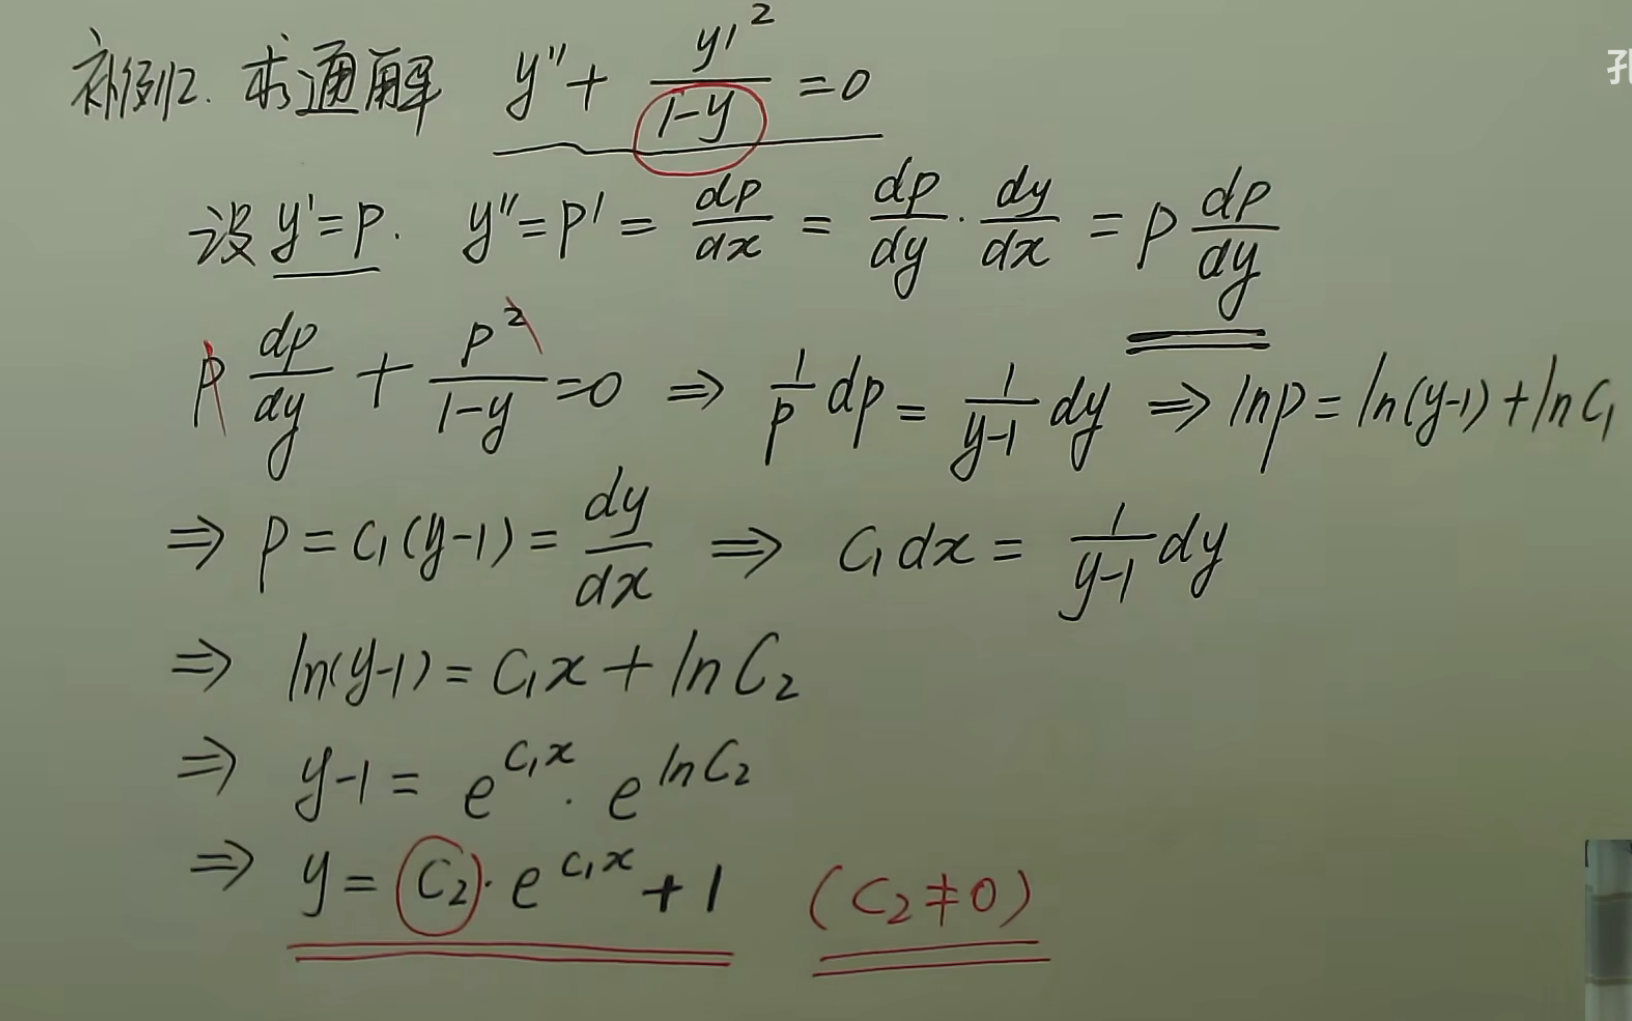 补例2. 求通解 y'' + y'²/(1-y) = 0
孔
设 y'=p. y''=p' = dp/dx = dp/dy · dy/dx = p dp/dy
p dp/dy + p²/(1-y) = 0 ⇒ 1/p dp = 1/(y-1) dy ⇒ ln p = ln(y-1) + ln C₁
⇒ p = C₁(y-1) = dy/dx ⇒ C₁dx = 1/(y-1) dy
⇒ ln(y-1) = C₁x + ln C₂
⇒ y-1 = e^(C₁x) · e^(ln C₂)
⇒ y = C₂ · e^(C₁x) + 1 (C₂≠0)